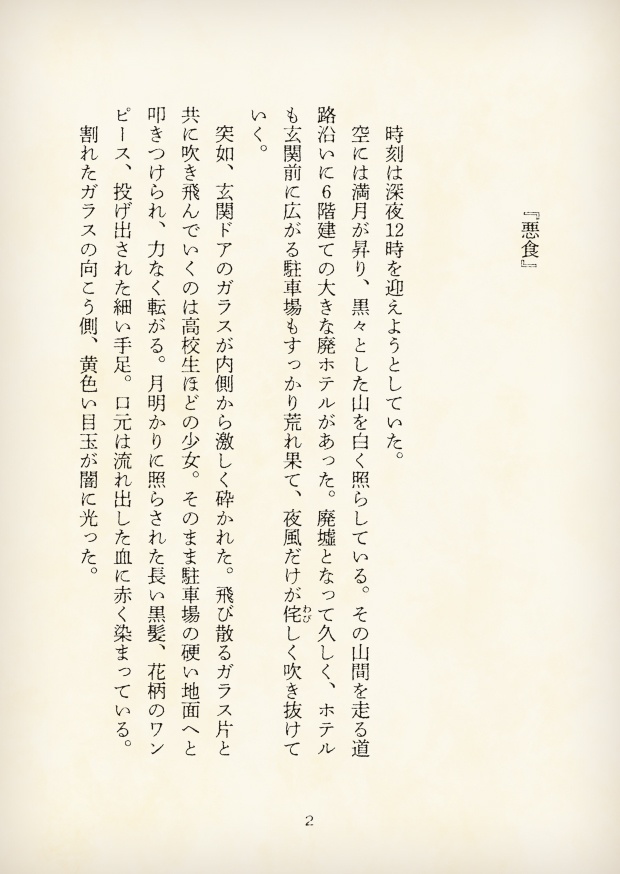 『悪食』
時刻は深夜12時を迎えようとしていた。
空には満月が昇り、黒々とした山を白く照らしている。その山間を走る道
路沿いに6階建ての大きな廃ホテルがあった。廃墟となって久しく、ホテル
も玄関前に広がる駐車場もすっかり荒れ果て、夜風だけが侘しく吹き抜けて
わび
いく。
突如、玄関ドアのガラスが内側から激しく砕かれた。飛び散るガラス片と
共に吹き飛んでいくのは高校生ほどの少女。そのまま駐車場の硬い地面へと
叩きつけられ、力なく転がる。月明かりに照らされた長い黒髪、花柄のワン
ピース、投げ出された細い手足。口元は流れ出した血に赤く染まっている。
割れたガラスの向こう側、黄色い目玉が闇に光った。
2